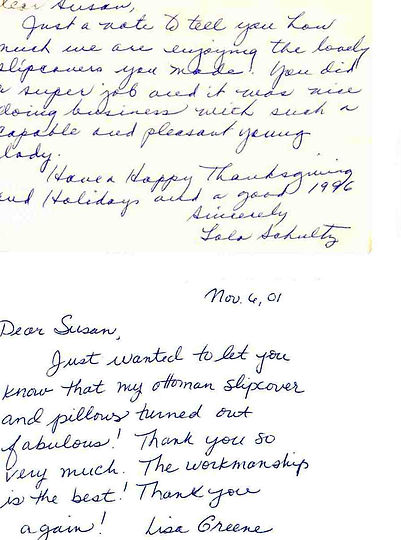 Dear Susan,
Just a note to tell you how
much we are enjoying the lovely
slipcovers you made! You did
a super job and it was nice
doing business with such a
capable and pleasant young
lady.
Have a Happy Thanksgiving
and Holidays and a good 1996
Sincerely
Lola Schultz
Nov. 6, 01
Dear Susan,
Just wanted to let you
know that my ottoman slipcover
and pillows turned out
fabulous! Thank you so
very much. The workmanship
is the best! Thank you
again! Lisa Greene